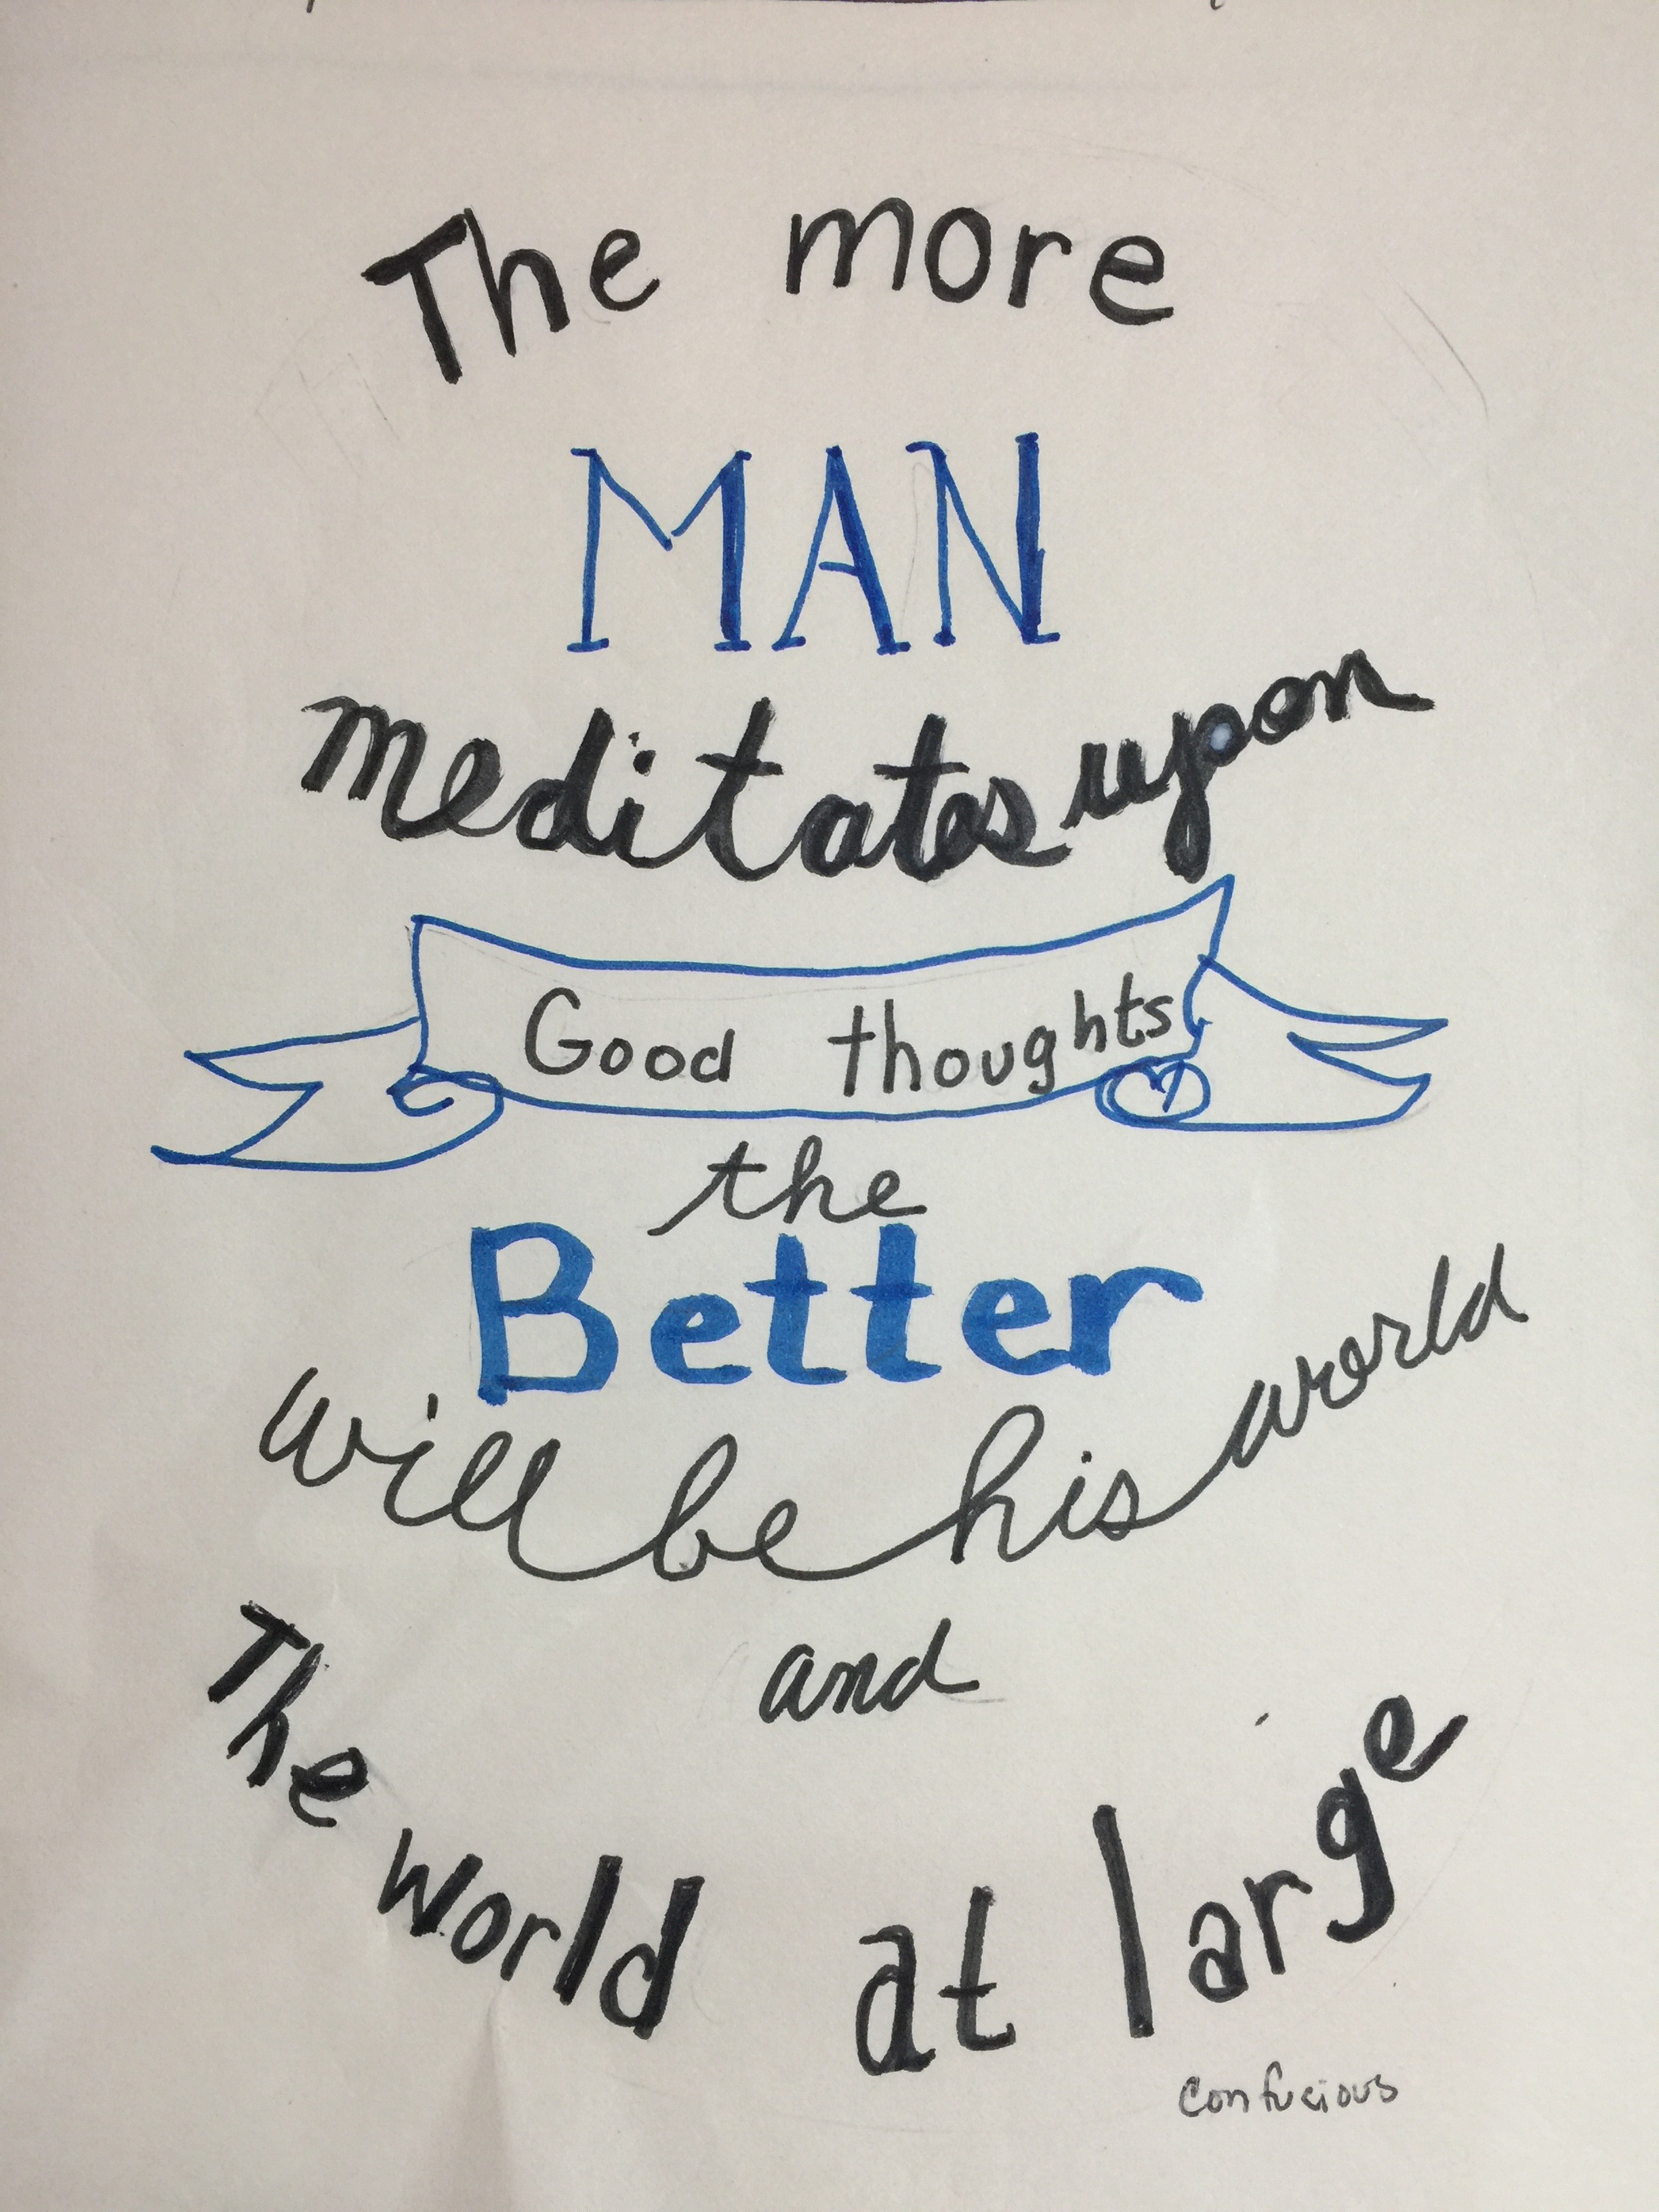 The more
MAN
meditates upon
Good thoughts
the
Better
will be his world
and
The world at large
Confucious